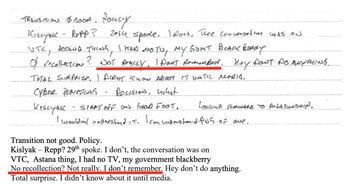 TRANSITION GOOD. POLICY
KISLYAK - REPP? 29TH SPOKE. I DON'T, THE CONVERSATION WAS ON
VTC, ASTANA THING, I HAD NO TV, MY GOVMT BLACKBERRY
RECOLLECTION? NOT REALLY, I DON'T REMEMBER. HEY DON'T DO ANYTHING.
TOTAL SURPRISE. I DIDN'T KNOW ABOUT IT UNTIL MEDIA.
CYBER BRIEFING - DECISION, WHAT
KISLYAK - START OFF ON GOOD FOOT. LOOKING FORWARD TO RELATIONSHIP.
I WOULD UNDERSTAND IT. OF ONE.
Transition not good. Policy.
Kislyak – Repp? 29th spoke. I don't, the conversation was on
VTC, Astana thing, I had no TV, my government blackberry
No recollection? Not really. I don't remember. Hey don't do anything.
Total surprise. I didn't know about it until media.